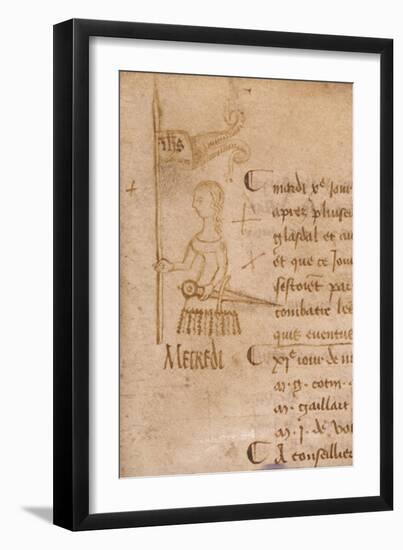 ihs
C mardi xe Jour
apres pluise
glasdal et au
et que ce Jou
sestoiẽt par
combatre les
quil eventue
MECREDI
C xje iour de m
m. g. cotin. a
m. gaillart
m. j. de
C A conseillier